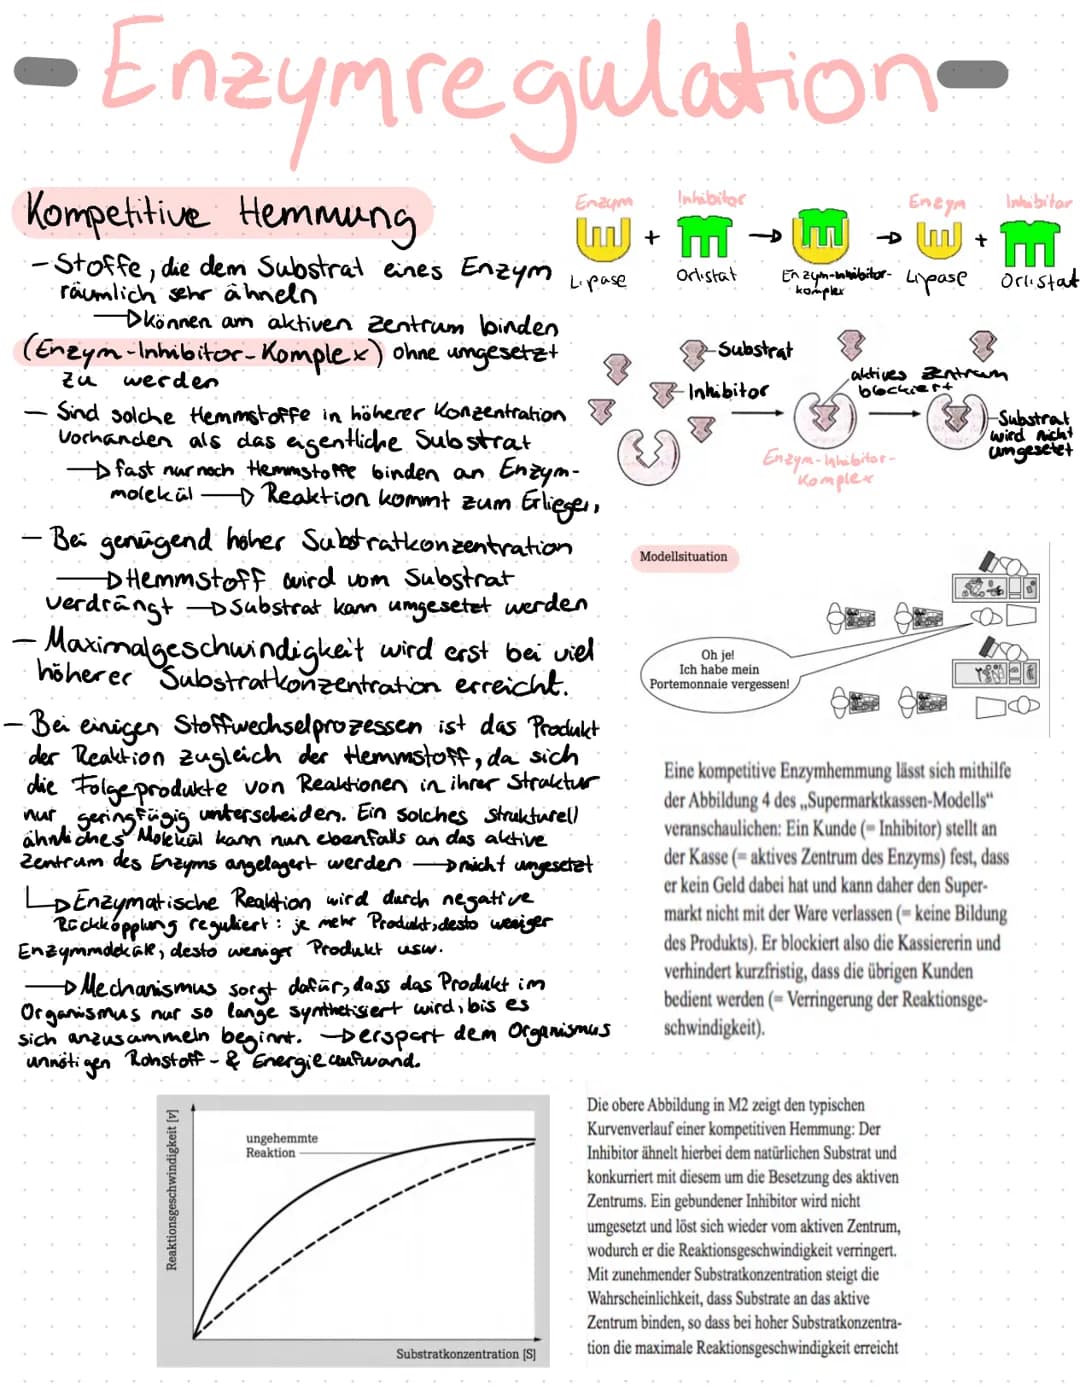 Enzymregulation
Kompetitive Hemmung
- Stoffe, die dem Substrat eines Enzym
räumlich sehr ähneln
können am aktiven Zentrum binden
(Enzym-Inhibitor-Komplex) ohne umgesetzt
zu werden
- Sind solche Hemmstoffe in höherer Konzentration
vorhanden als das eigentliche Substrat
fast nur noch Hemmstoffe binden an Enzym-
molekül → Reaktion kommt zum Erliegen
- Bei genügend hoher Substratkonzentration
→ Hemmstoff wird vom Substrat
verdrängt → Substrat kann umgesetzt werden
- Maximalgeschwindigkeit wird erst bei viel
höherer Substratkonzentration erreicht.
- Bei einigen Stoffwechselprozessen ist das Produkt
der Reaktion zugleich der Hemmstoff, da sich
die Folgeprodukte von Reaktionen in ihrer Struktur
nur geringfügig unterscheiden. Ein solches strukturell
ähnliches Molekül kann nun ebenfalls an das aktive
Zentrum des Enzyms angelagert werden → nicht umgesetzt
→ Enzymatische Reaktion wird durch negative
Rückkopplung reguliert: je mehr Produkt, desto weniger
Enzymmoleküle, desto weniger Produkt usw.
→ Mechanismus sorgt dafür, dass das Produkt im
Organismus nur so lange synthetisiert wird, bis es
sich anzusammeln beginnt. → erspart dem Organismus
unnötigen Rohstoff- & Energieaufwand.
Enzym Inhibitor Enzym Inhibitor
+ → → +
Lipase Orlistat Enzym-Inhibitor-komplex Lipase Orlistat
Substrat
Inhibitor
aktives Zentrum
blockiert
Enzym-Inhibitor-
Komplex
Substrat
wird nicht
umgesetzt
Modellsituation
Oh je!
Ich habe mein
Portemonnaie vergessen!
Eine kompetitive Enzymhemmung lässt sich mithilfe
der Abbildung 4 des „Supermarktkassen-Modells“
veranschaulichen: Ein Kunde (= Inhibitor) stellt an
der Kasse (= aktives Zentrum des Enzyms) fest, dass
er kein Geld dabei hat und kann daher den Super-
markt nicht mit der Ware verlassen (= keine Bildung
des Produkts). Er blockiert also die Kassiererin und
verhindert kurzfristig, dass die übrigen Kunden
bedient werden (= Verringerung der Reaktionsge-
schwindigkeit).
Reaktionsgeschwindigkeit [v]
ungehemmte
Reaktion
Substratkonzentration [S]
Die obere Abbildung in M2 zeigt den typischen
Kurvenverlauf einer kompetitiven Hemmung: Der
Inhibitor ähnelt hierbei dem natürlichen Substrat und
konkurriert mit diesem um die Besetzung des aktiven
Zentrums. Ein gebundener Inhibitor wird nicht
umgesetzt und löst sich wieder vom aktiven Zentrum,
wodurch er die Reaktionsgeschwindigkeit verringert.
Mit zunehmender Substratkonzentration steigt die
Wahrscheinlichkeit, dass Substrate an das aktive
Zentrum binden, so dass bei hoher Substratkonzentra-
tion die maximale Reaktionsgeschwindigkeit erreicht